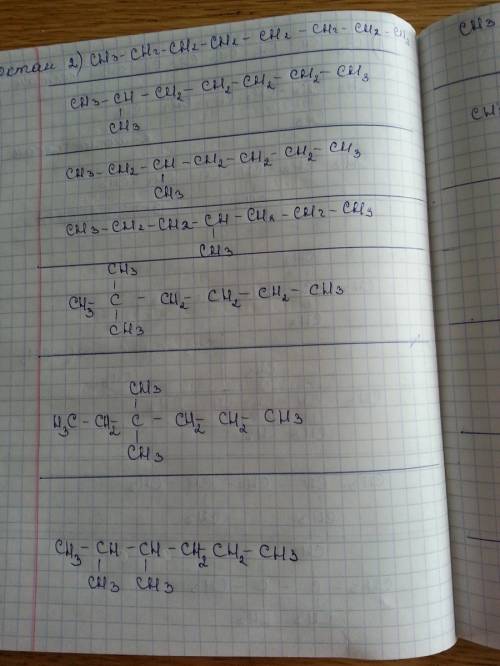 октан 2) CH3-CH2-CH2-CH2-CH2-CH2-CH2-CH3
CH3-CH-CH2-CH2-CH2-CH2-CH3
CH3
CH3-CH2-CH-CH2-CH2-CH2-CH3
CH3
CH3-CH2-CH2-CH-CH2-CH2-CH3
CH3
CH3
CH3-C-CH2-CH2-CH2-CH3
CH3
CH3
H3C-CH2-C-CH2-CH2-CH3
CH3
CH3-CH-CH-CH2-CH2-CH3
CH3 CH3
CH3
CH